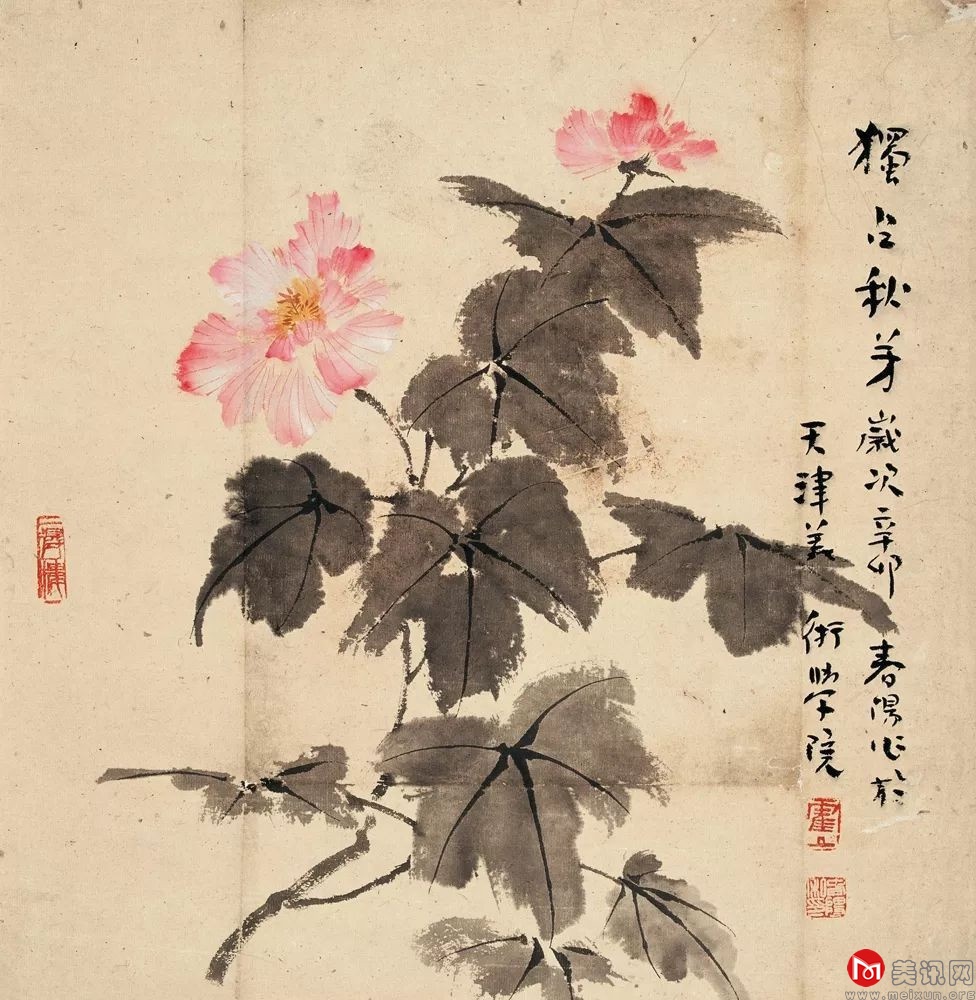 獨占秋芳歲次辛卯春陽作於
天津美術學院
美讯网
www.meixun.org